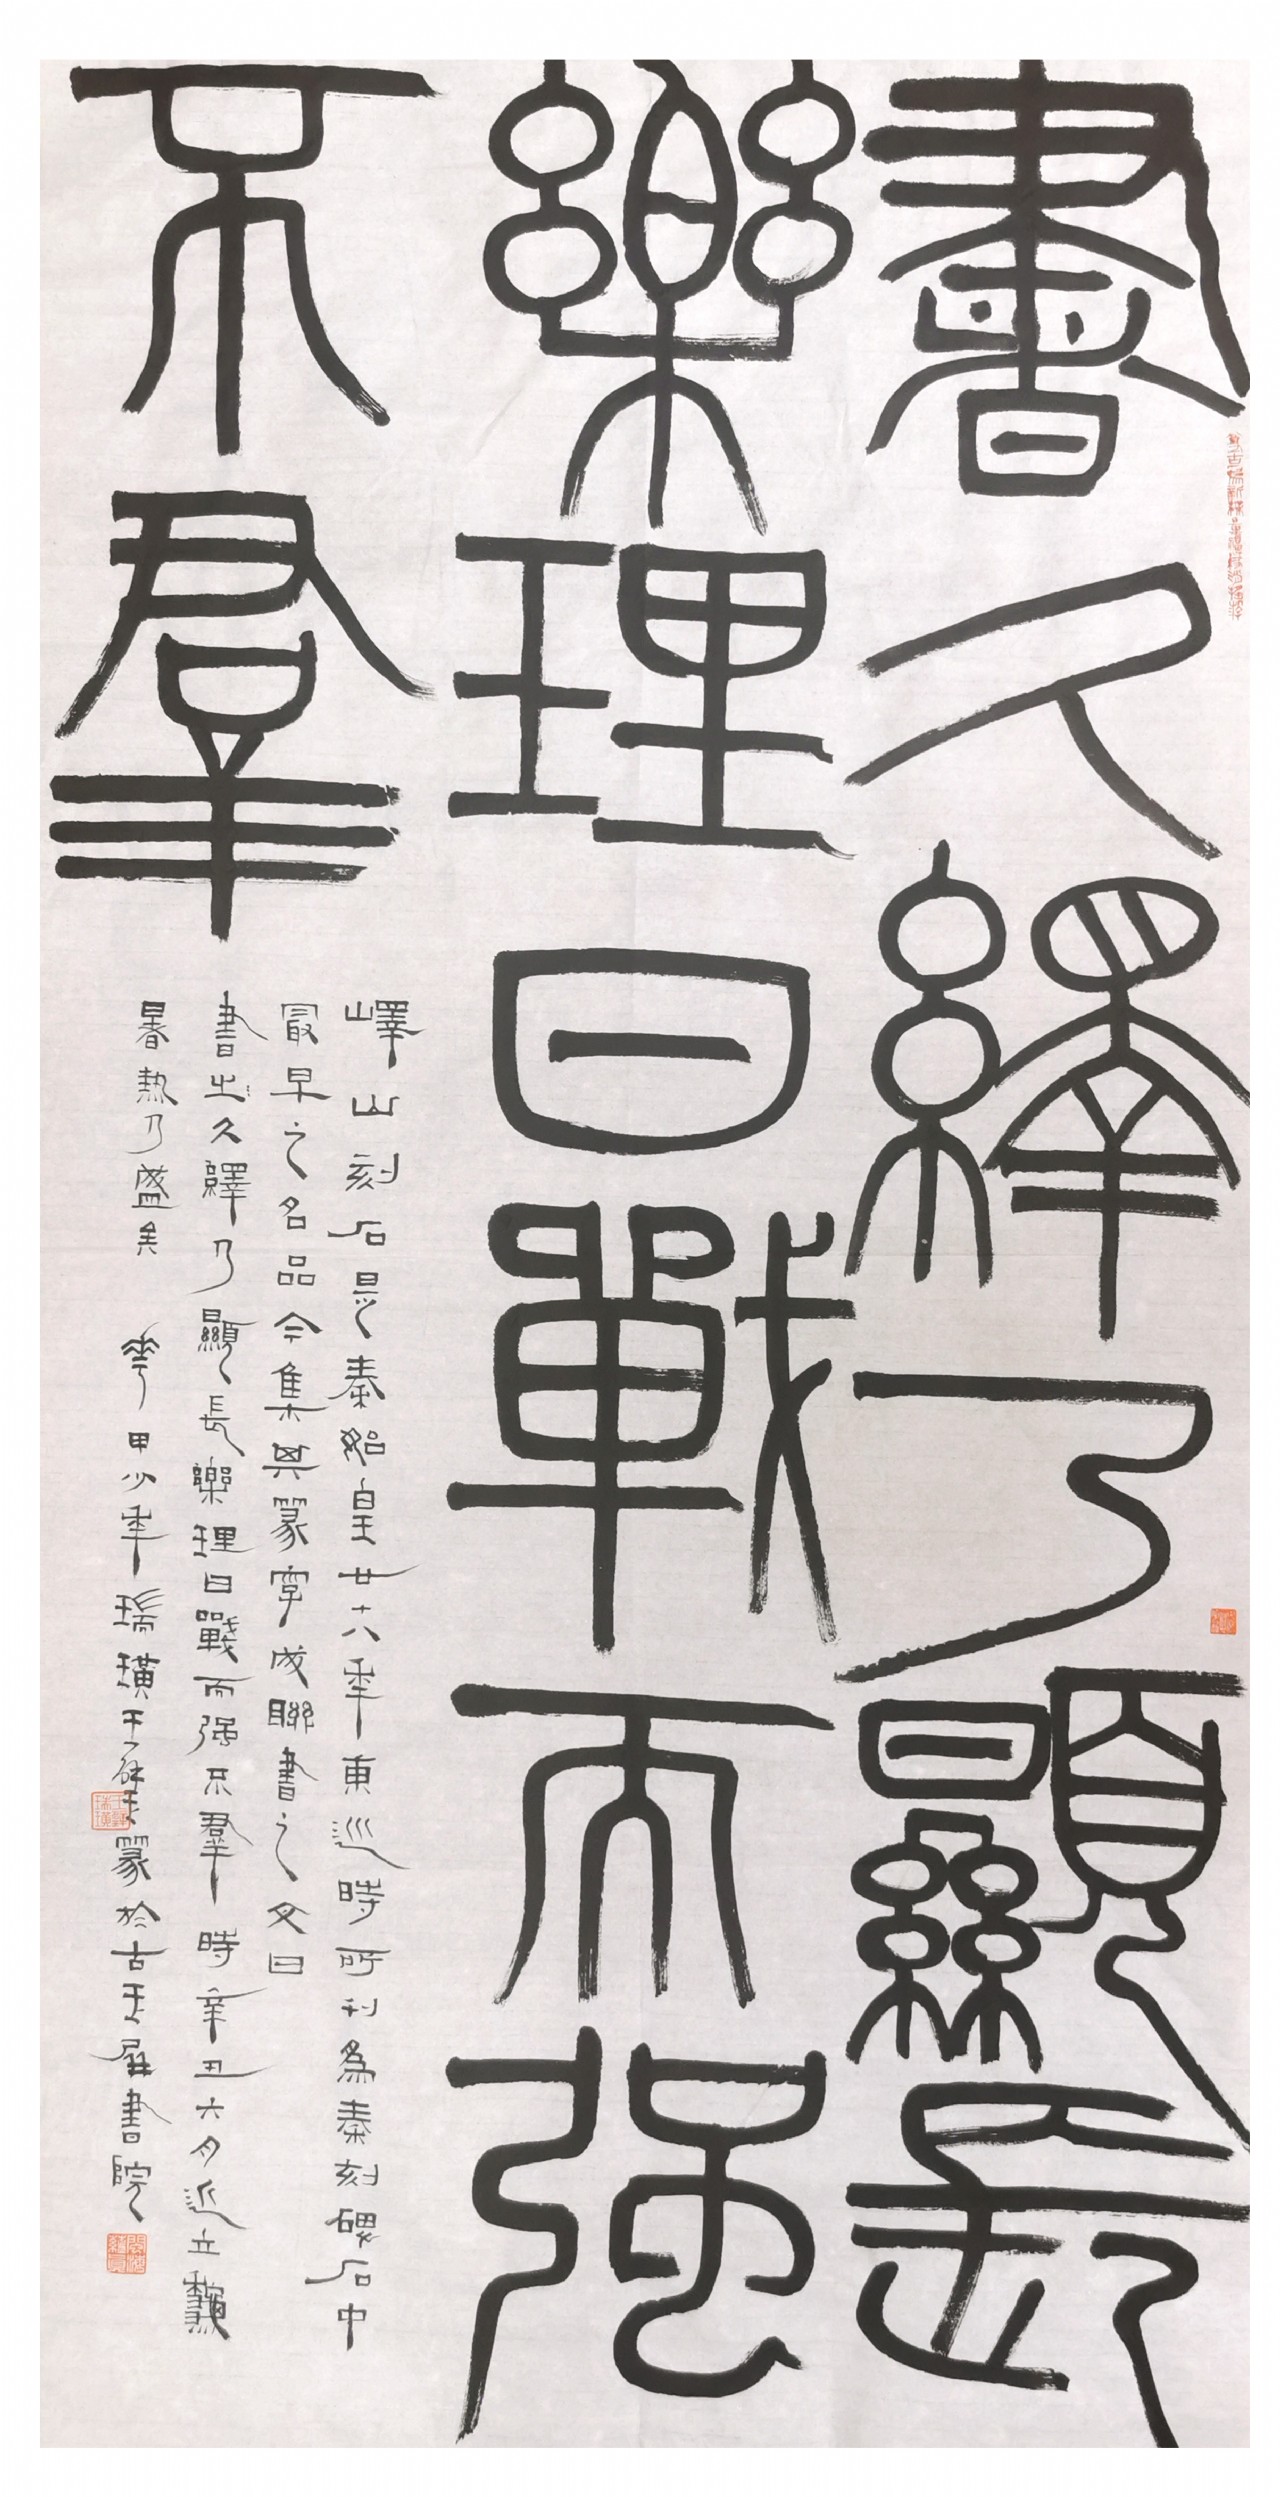 書久繹乃顯長
樂理曰戰而强
不群
嶧山刻石是秦始皇廿八年東巡時所刊為秦刻碑石中
最早之名品今集其篆字成聯書之文曰
書之久繹乃顯長樂理曰戰而强不群時辛丑六月近立秋
暑熱乃盛矣 花甲少年瑞璜王辟玉篆於古玉屏書院